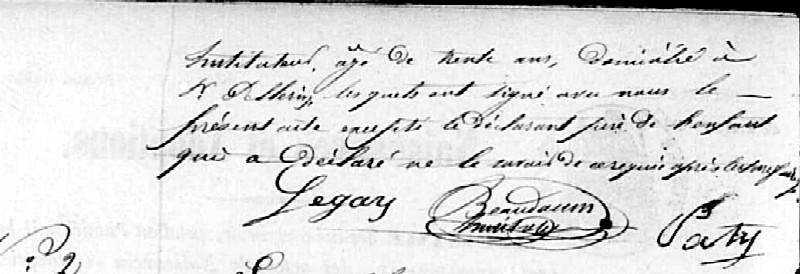 Instituteur, âgé de trente ans, domicilié à
St. lesquels ont signé avec nous le
présent acte excepté le déclarant père de l'enfant
qui a déclaré ne le savoir de ce requis après lecture
Legars Beaudouin Paty
N° 2